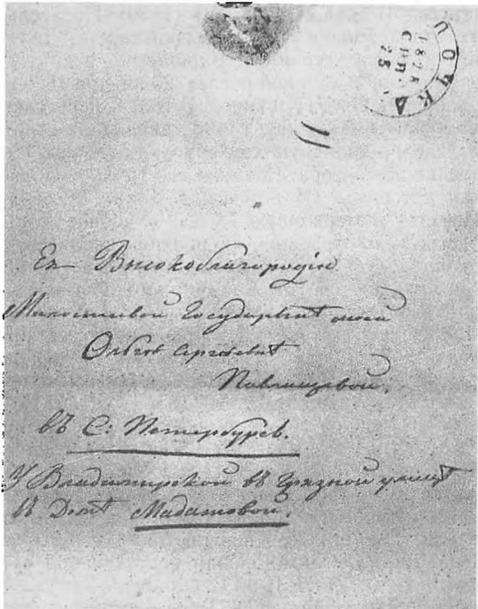 ОПОЧКА
1828
СЕН.
25
Ея Высокоблагородію
Милостивой Государынѣ моей
Ольгѣ Сергѣевнѣ
Павлищевой.
въ С: Петербургѣ.
У Владимирской въ Грязной улицѣ
въ Домѣ Мадатовой.